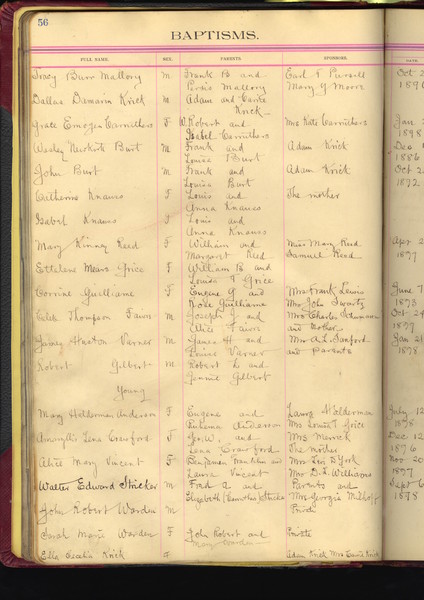 56
BAPTISMS.
FULL NAME. SEX. PARENTS. SPONSORS. DATE.
Tracy Burr Mallory M Frank B and Earl T Pursell Oct 2
Persis Mallory Mary G Moore 189
Dallas Damarin Krick M Adam and Carrie
Krick
Grace Emogen Carruthers F W. Robert and Mrs Kate Carruthers Jan 2
Isabel Carruthers 1898
Wesley Burt M Frank and Adam Krick Dec
Louisa Burt 1886
John Burt M Frank and Adam Krick Oct 2
Louisa Burt 1892
Catherine Knauss F Louis and The mother
Anna Knauss
Isabel Knauss F Louis and
Anna Knauss
Mary Kinney Reed F William and Miss Mary Reed Apr 2
Margaret Reed Samuel Reed 1897
Ettelene Mears Grice F William B and
Louise T Grice
Corrine Guilliame F Eugene G and Mrs Frank Lewis June 7
Rose Guilliame Mrs John Swartz 1893
Caleb Thompson Fawn M Joseph J and Mrs Charles Oct 24
Alice Fawn and Mother 1897
James Huston Varner M James H and Mrs A. L. Sanford Jan 21
Louise Varner and Parents 1898
Robert Gilbert M Robert L and
Jennie Gilbert
Young
Mary Haldeman Anderson F Eugene and Laura Haldeman July 12
Anderson Mrs Louise T Grice 1898
Lena Crawford F Geo. W. and Mrs Merrick Dec 12
Lena Crawford The mother 1896
Alice Mary Vincent F Benjamin Franklin and Mrs Levi D York Nov 20
Laura Vincent Mrs D. S. Williams 1897
Walter Edward Stricker M Fred A and Parents and Sept 6
Elizabeth Stricker Mrs Georgia 1898
John Robert Warden M Private
Sarah Marie Warden F John Robert and Private
Mary Warden
Ella Cecelia Krick F Adam Krick Mrs Krick